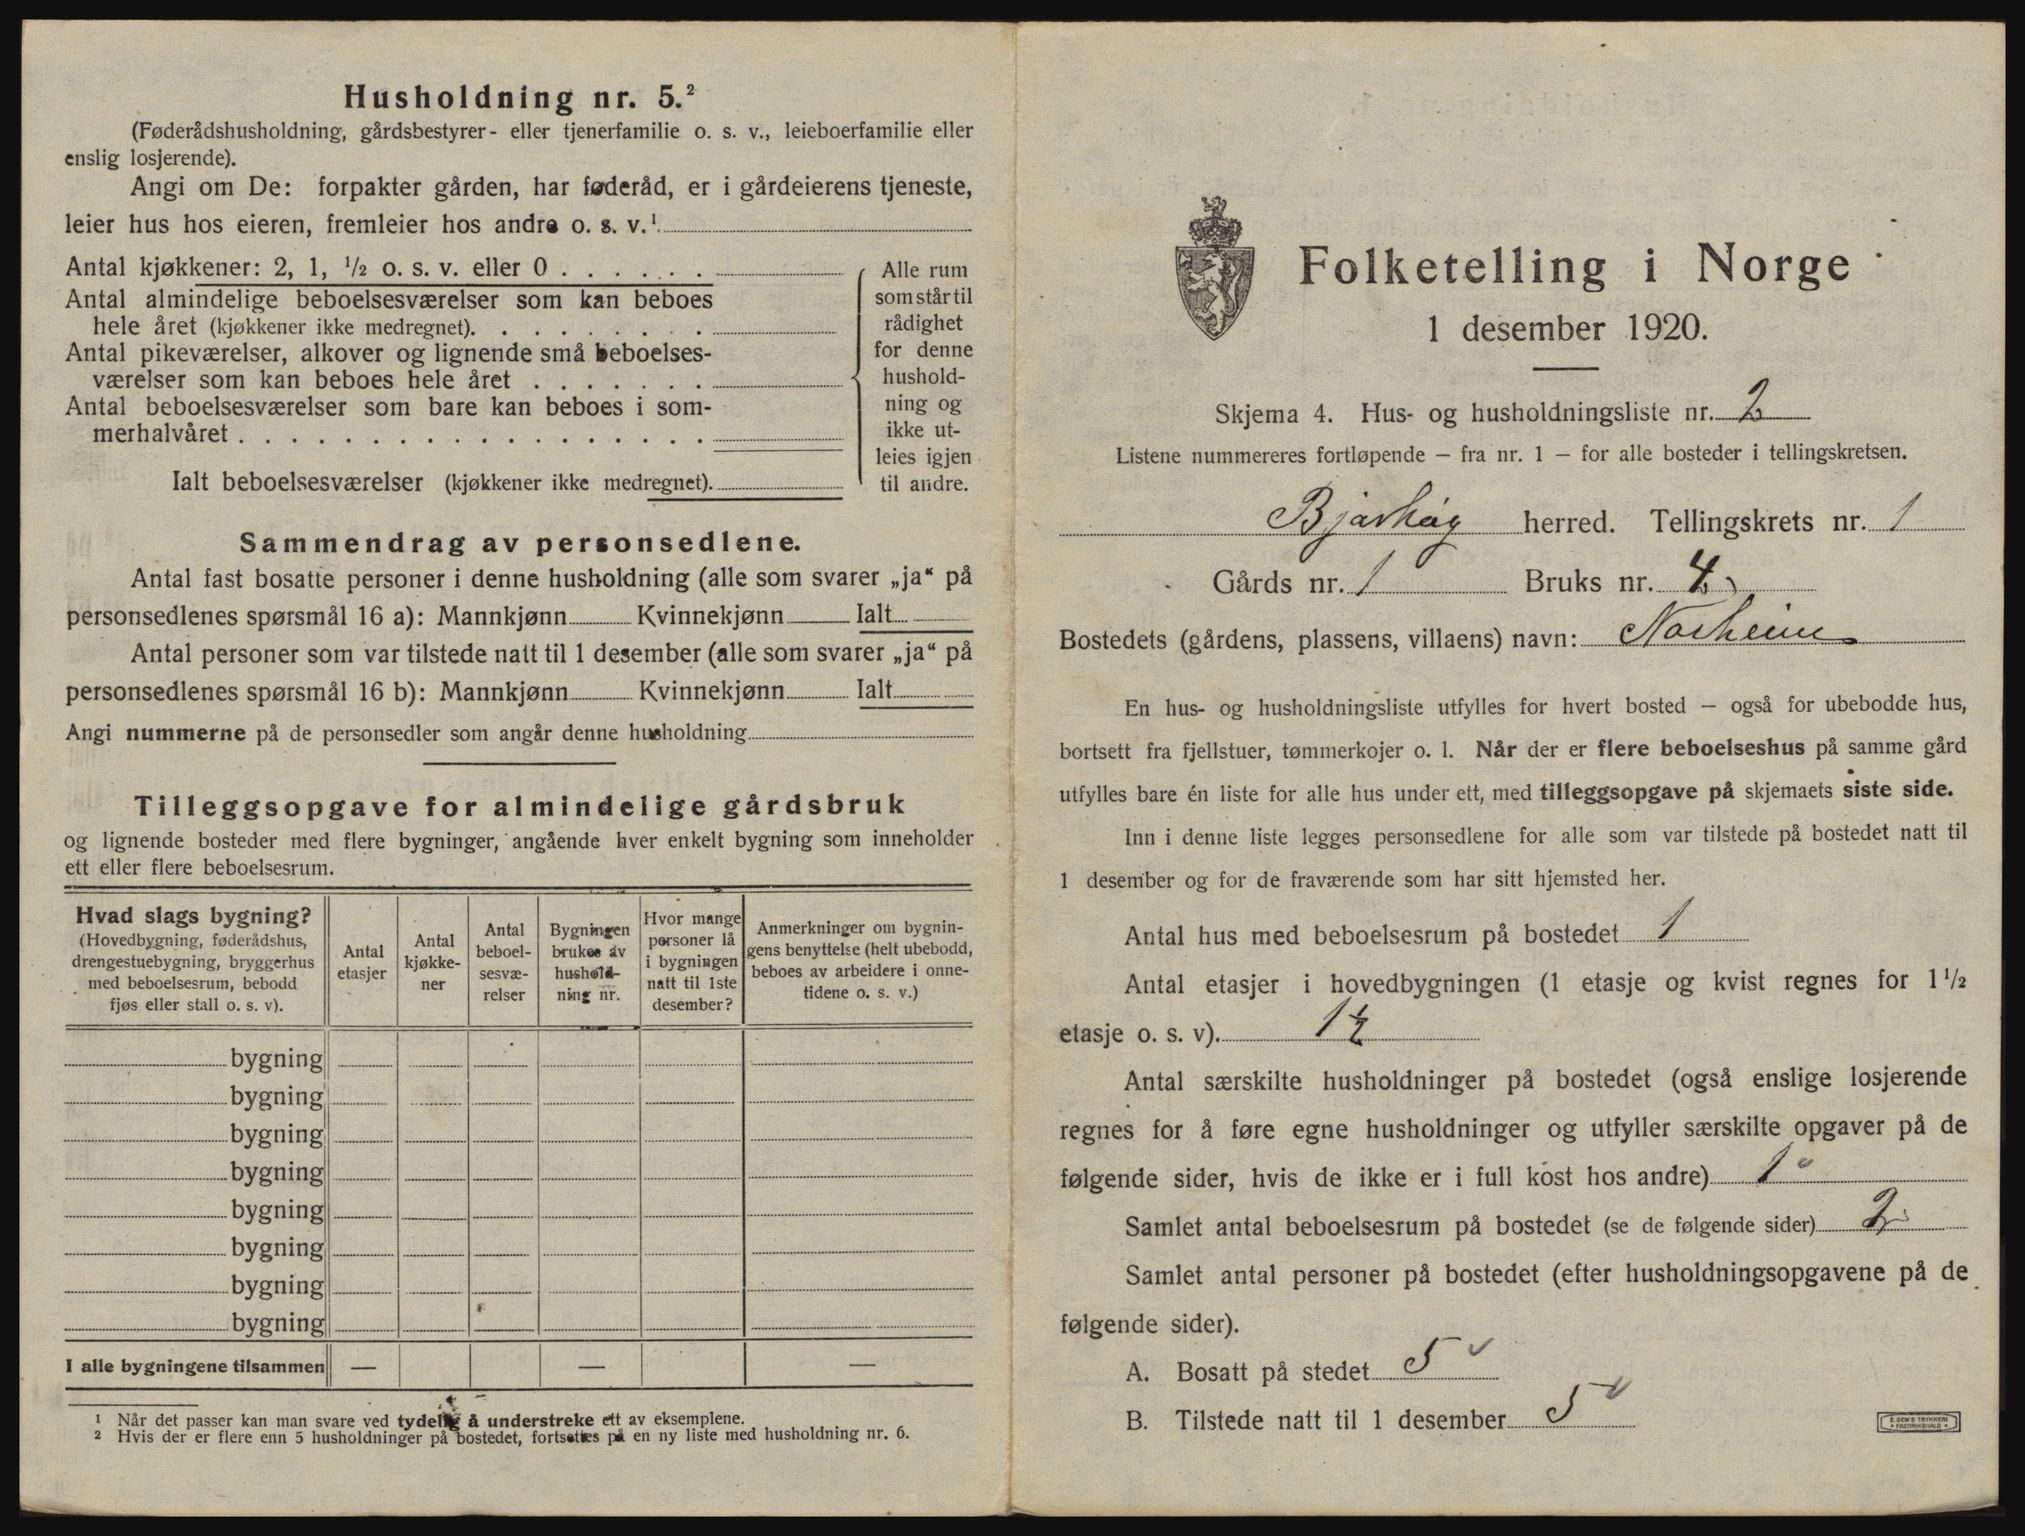 Husholdning nr. 5.²
(Føderådshusholdning, gårdsbestyrer- eller tjenerfamilie o. s. v., leieboerfamilie eller
enslig losjerende).
Angi om De: forpakter gården, har føderåd, er i gårdeierens tjeneste,
leier hus hos eieren, fremleier hos andre o. s. v.¹
Antal kjøkkener: 2, 1, ½ o. s. v. eller 0
Antal almindelige beboelsesværelser som kan beboes
hele året (kjøkkener ikke medregnet).
Antal pikeværelser, alkover og lignende små beboelses-
værelser som kan beboes hele året
Antal beboelsesværelser som bare kan beboes i som-
merhalvåret
Ialt beboelsesværelser (kjøkkener ikke medregnet).
Alle rum
som står til
rådighet
for denne
hushold-
ning og
ikke ut-
leies igjen
til andre.
Sammendrag av personsedlene.
Antal fast bosatte personer i denne husholdning (alle som svarer „ja“ på
personsedlenes spørsmål 16 a): Mannkjønn Kvinnekjønn Ialt
Antal personer som var tilstede natt til 1 desember (alle som svarer „ja“ på
personsedlenes spørsmål 16 b): Mannkjønn Kvinnekjønn Ialt
Angi nummerne på de personsedler som angår denne husholdning
Tilleggsopgave for almindelige gårdsbruk
og lignende bosteder med flere bygninger, angående hver enkelt bygning som inneholder
ett eller flere beboelsesrum.
Hvad slags bygning?
(Hovedbygning, føderådshus,
drengestuebygning, bryggerhus
med beboelsesrum, bebodd
fjøs eller stall o. s. v).
Antal
etasjer
Antal
kjøkke-
ner
Antal
beboel-
sesvæ-
relser
Bygningen
brukes av
hushold-
ning nr.
Hvor mange
personer lå
i bygningen
natt til 1ste
desember?
Anmerkninger om bygnin-
gens benyttelse (helt ubebodd,
beboes av arbeidere i onne-
tidene o. s. v.)
bygning
bygning
bygning
bygning
bygning
bygning
bygning
bygning
I alle bygningene tilsammen — — —
¹ Når det passer kan man svare ved tydelig å understreke ett av eksemplene.
² Hvis der er flere enn 5 husholdninger på bostedet, fortsettes på en ny liste med husholdning nr. 6.
Folketelling i Norge
1 desember 1920.
Skjema 4. Hus- og husholdningsliste nr. 2
Listene nummereres fortløpende – fra nr. 1 – for alle bosteder i tellingskretsen.
Bjarkøy herred. Tellingskrets nr. 1
Gårds nr. 1 Bruks nr. 4
Bostedets (gårdens, plassens, villaens) navn: Norheim
En hus- og husholdningsliste utfylles for hvert bosted – også for ubebodde hus,
bortsett fra fjellstuer, tømmerkojer o. l. Når der er flere beboelseshus på samme gård
utfylles bare én liste for alle hus under ett, med tilleggsopgave på skjemaets siste side.
Inn i denne liste legges personsedlene for alle som var tilstede på bostedet natt til
1 desember og for de fraværende som har sitt hjemsted her.
Antal hus med beboelsesrum på bostedet 1
Antal etasjer i hovedbygningen (1 etasje og kvist regnes for 1½
etasje o. s. v). 1½
Antal særskilte husholdninger på bostedet (også enslige losjerende
regnes for å føre egne husholdninger og utfyller særskilte opgaver på de
følgende sider, hvis de ikke er i full kost hos andre) 1
Samlet antal beboelsesrum på bostedet (se de følgende sider) 2
Samlet antal personer på bostedet (efter husholdningsopgavene på de
følgende sider).
A. Bosatt på stedet 5
B. Tilstede natt til 1 desember 5
E. SEM'S TRYKKERI
FREDRIKSHALD